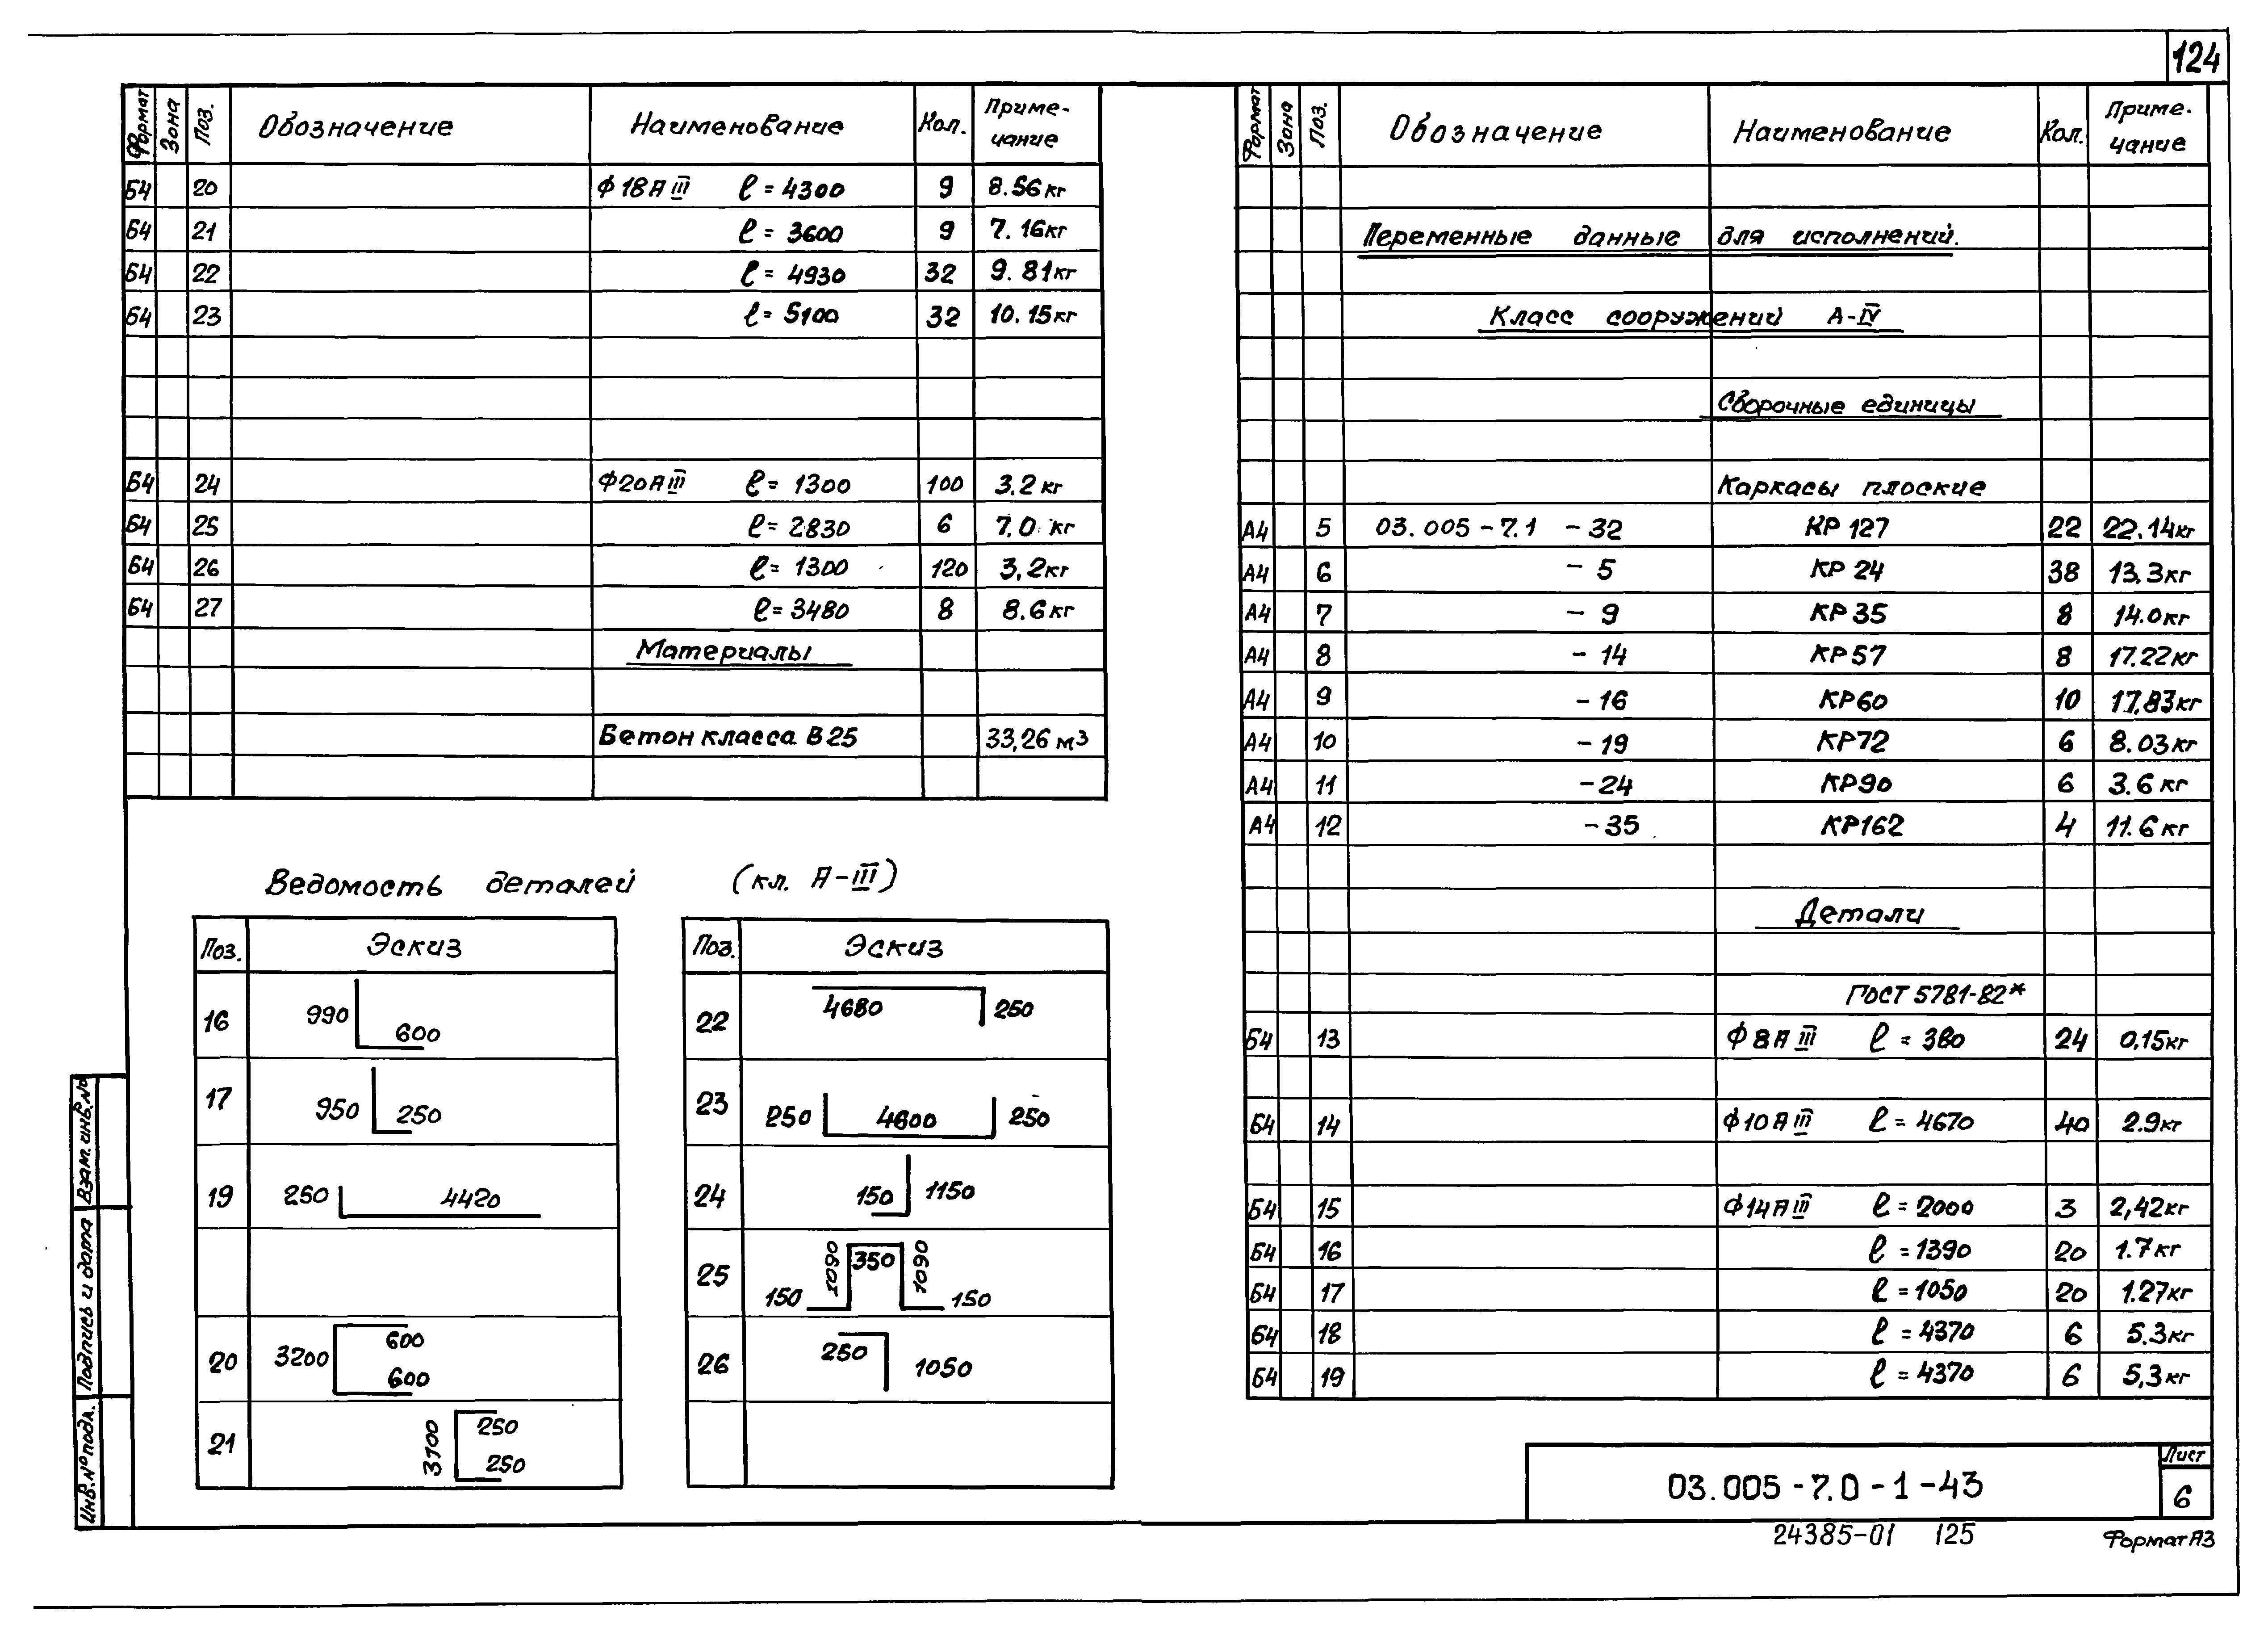 124
Формат Зона Поз. Обозначение Наименование Кол. Приме-чание
Б4 20 Ф18АIII ℓ = 4300 9 8.56кг
Б4 21 ℓ = 3600 9 7.16кг
Б4 22 ℓ = 4930 32 9.81кг
Б4 23 ℓ = 5100 32 10.15кг
Б4 24 Ф20АIII ℓ = 1300 100 3.2кг
Б4 25 ℓ = 2830 6 7.0 кг
Б4 26 ℓ = 1300 120 3,2кг
Б4 27 ℓ = 3480 8 8.6кг
Материалы
Бетон класса В25 33,26 м3
Ведомость деталей (кл. А-III)
Поз. Эскиз
16 990 600
17 950 250
19 250 4420
20 3200 600 600
21 3100 250 250
Поз. Эскиз
22 4680 250
23 250 4600 250
24 150 1150
25 150 1090 350 1090 150
26 250 1050
Формат Зона Поз. Обозначение Наименование Кол. Приме-чание
Переменные данные для исполнений.
Класс сооружений А-IV
Сборочные единицы
Каркасы плоские
А4 5 03.005-7.1 -32 КР127 22 22.14кг
А4 6 - 5 КР24 38 13,3кг
А4 7 - 9 КР35 8 14.0кг
А4 8 - 14 КР57 8 17.22кг
А4 9 - 16 КР60 10 17,83кг
А4 10 - 19 КР72 6 8.03кг
А4 11 - 24 КР90 6 3.6 кг
А4 12 - 35 КР162 4 11.6кг
Детали
ГОСТ 5781-82*
Б4 13 Ф8АIII ℓ = 380 24 0,15кг
Б4 14 Ф10АIII ℓ = 4670 40 2.9кг
Б4 15 Ф14АIII ℓ = 2000 3 2,42кг
Б4 16 ℓ = 1390 20 1.7кг
Б4 17 ℓ = 1050 20 1.27кг
Б4 18 ℓ = 4370 6 5.3кг
Б4 19 ℓ = 4370 6 5,3кг
Взам. инв. №
Подпись и дата
Инв. № подл.
03.005-7.0-1-43
Лист
6
24385-01 125
Формат А3